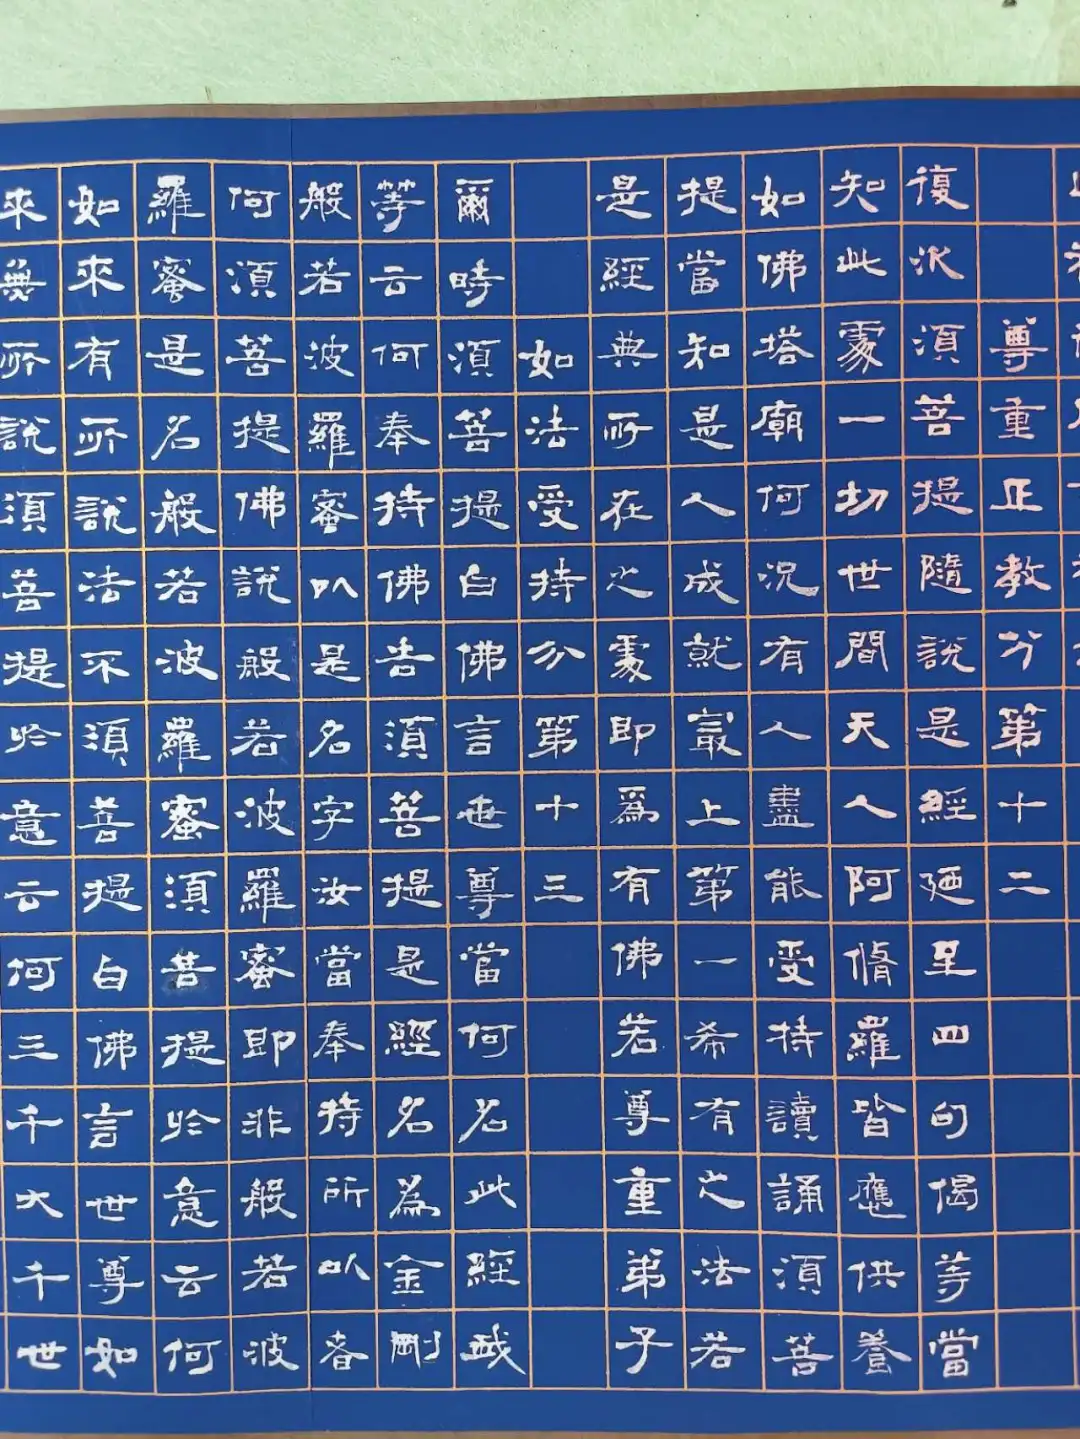 尊重正教分第十二
復次須菩提隨說是經廼至四句偈等當
知此處一切世間天人阿脩羅皆應供養
如佛塔廟何況有人盡能受持讀誦須菩
提當知是人成就最上第一希有之法若
是經典所在之處即爲有佛若尊重弟子
如法受持分第十三
爾時須菩提白佛言世尊當何名此經我
等云何奉持佛告須菩提是經名為金剛
般若波羅蜜以是名字汝當奉持所以者
何須菩提佛說般若波羅蜜即非般若波
羅蜜是名般若波羅蜜須菩提於意云何
如來有所說法不須菩提白佛言世尊如
來無所說須菩提於意云何三千大千世